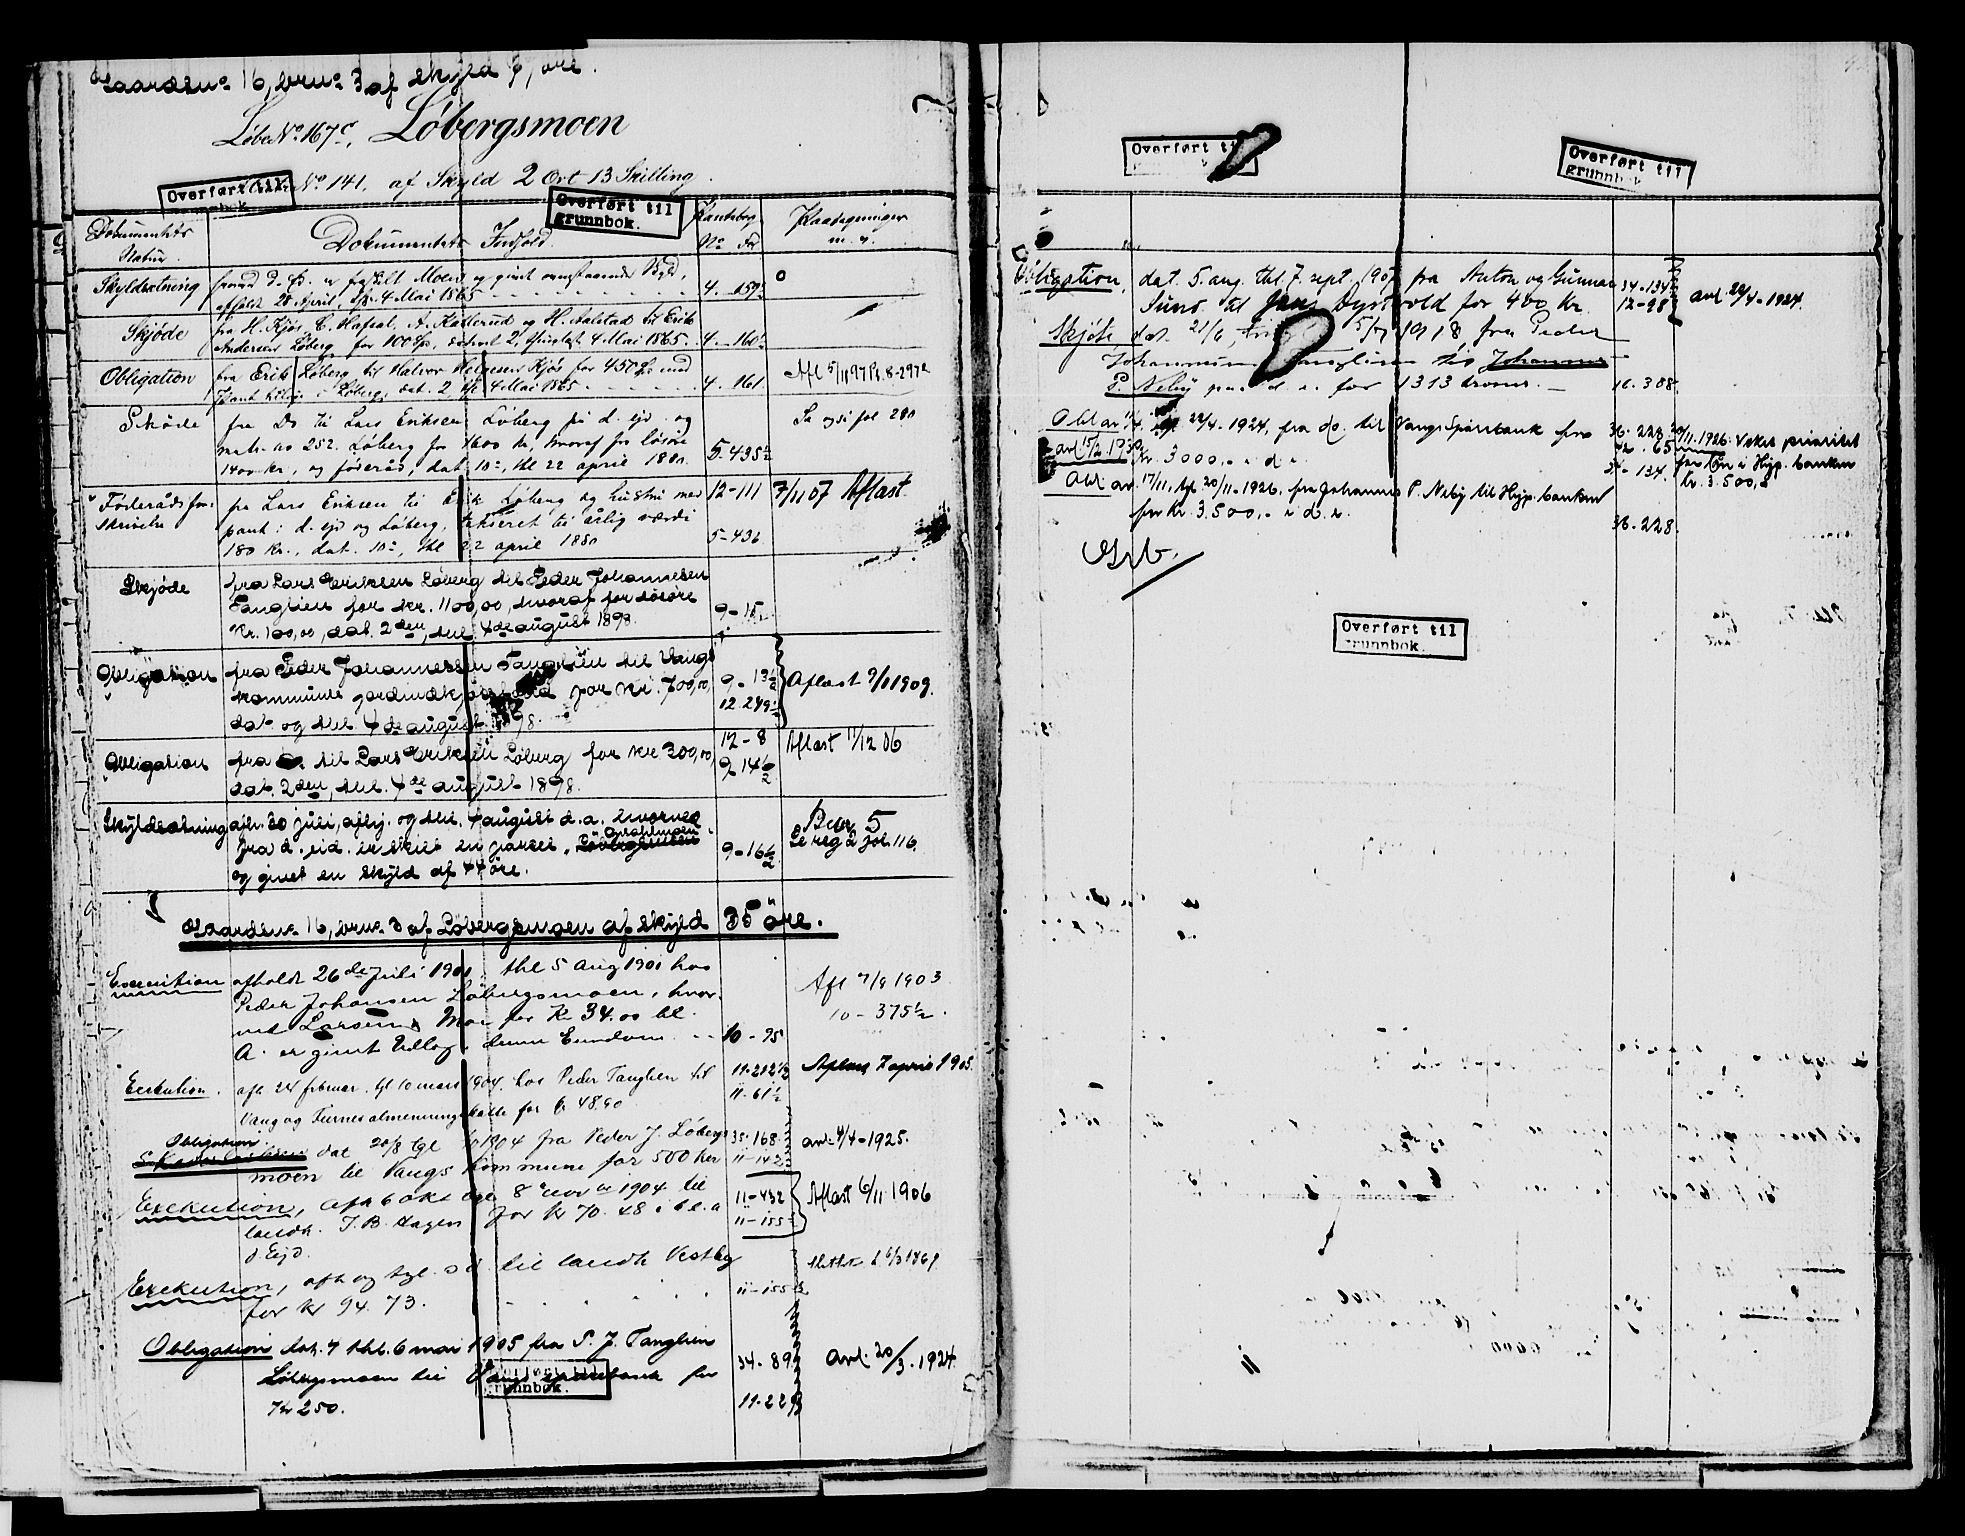 Gaardsno 16, bruno 3 af skyld , øre.
Løbe No 167c, Løbergsmoen
No 141. af Skyld 2 Ort 13 Skilling.
Overført til
grunnbok.
Overført til
grunnbok.
Dokumentets
Natur.
Dokumentets Indhold.
Pantebog
No Fol
Paategninger
m. v.
Skyldsætning
afholdt 28 April, 4 Mai 1865
4. 159
Skjøde
fra H. Kjøs, C. Hafsal, A. Kallerud og H. Aalstad til Erik
Andersen Løberg for 100 Spd, dateret 2, thinglæst 4 Mai 1865.
4. 160
Obligation
fra Erik Løberg til Halvor Helgesen Kjøs for 450 Spd med
Løberg, dat. 2, 4 Mai 1865
4. 161
Afl 5/11 97 Pr. 8-297
Skøde
fra Do til Lars Eriksen Løberg på d. ejd. og
matr. no 252. Løberg for 1600 kr, hvoraf for løsøre
1400 kr., og føderåd, dat. 10de, thl 22 april 1880.
5-435½
Se også fol 280
Føderådsfor-
skrivelse
fra Lars Eriksen til Erik Løberg og hustru med
pant i d. ejd og Løberg, takseret til årlig værdi
180 kr., dat. 10de, thl 22 april 1880
12-111
5-436
7/11 07 Aflæst.
Skjøde
fra Lars Eriksen Løberg til Peder Johannesen
Tanglien for kr. 1100,00, hvoraf for løsøre
Kr. 100,00, dat. 2den, thl. 4de august 1898.
9-15
Obligation
fra Peder Johannessen Tanglien til Vangs
kommunes jordindkjøbsfond for kr. 700,00,
dat. og thl. 4de august 1898.
9-13½
12.249½
Aflæst 9/1 1909.
Obligation
fra do. til Lars Eriksen Løberg for kr 300,00,
dat. 2den, thl. 4de august 1898.
12-8
9-14½
Aflæst 1/12 06
Skyldsætning
afh. 30 juli, afhj. og thl. 4 august d.a. hvorved
fra d. eid. er skilt en parsel,
og givet en skyld af 44 øre.
9-16½
Brno 5
Se reg 2 fol. 116.
Gaardsno 16, bruno 3 af Løbergsmoen af skyld 35 øre.
Execution
afholdt 26de Juli 1901, thl 5 Aug 1901 hos
Peder Johansen Løbergsmoen, hvor-
ved Larsen Moe for Kr 34.00 bl.
A. er givet Udlæg i denne Eiendom.
10-95
Afl 7/9 1903
10-375½.
Exekution.
afh. 24 februar. tgl 10 mars 1904. hos Peder Tanglien til
Vang og Furnes almenningskasse for kr 48.90
11-212½
11-61½
Aflæst 7 april 1905.
Obligation
dat 20/8 tgl 1904 fra Peder J. Løbergs-
moen til Vangs kommune for 500 kr
35.168
11-142
avl. 4/4-1925.
Exekution, afh 6 okt tgl 8 nov 1904 til
landh. J. B. Hagen for kr 70.48 i bl. a
d. Ejd.
11-432
11-155
Aflæst 6/11 1906
Exekution, afh og tgl. s. d. til landh Vestby
for kr 94.73.
11-155½
Obligation dat. 4 thl. 6 mai 1905 fra P. J. Tanglien
Løbergsmoen til Vangs sparebank for
Kr 250.
34-89
11-229
avl. 20/3-1924.
Overført til
grunnbok.
Overført til
Overført til
grunnbok.
Obligation, dat. 5. aug. thl. 7. sept. 1907 fra Anton og Gunnar
Sund til Jens Dystvold for 400 kr.
34-134
12-98
avl. 29/4-1924.
Skjøte, dat. 21/6, 5/7 1918 fra Peder
Johannessen Tanglien til Johannes
P. Neby på d. e. for 1313 kroner.
16-388
Obl av 11/4. tgl 22/4-1924, fra do. til Vangs Sparebank for
kr. 3000,- i d. e.
avl 15/2 1932
36-228
65
34-134
20/11.1926: Veket prioritet
for lån i Hyp. banken
kr. 3.500,-
Obl. av 17/11, tgl. 20/11-1926, fra Johannes P. Neby til Hyp. banken
for kr. 3.500,- i d. e.
36-228.
Grb.
Overført til
grunnbok.